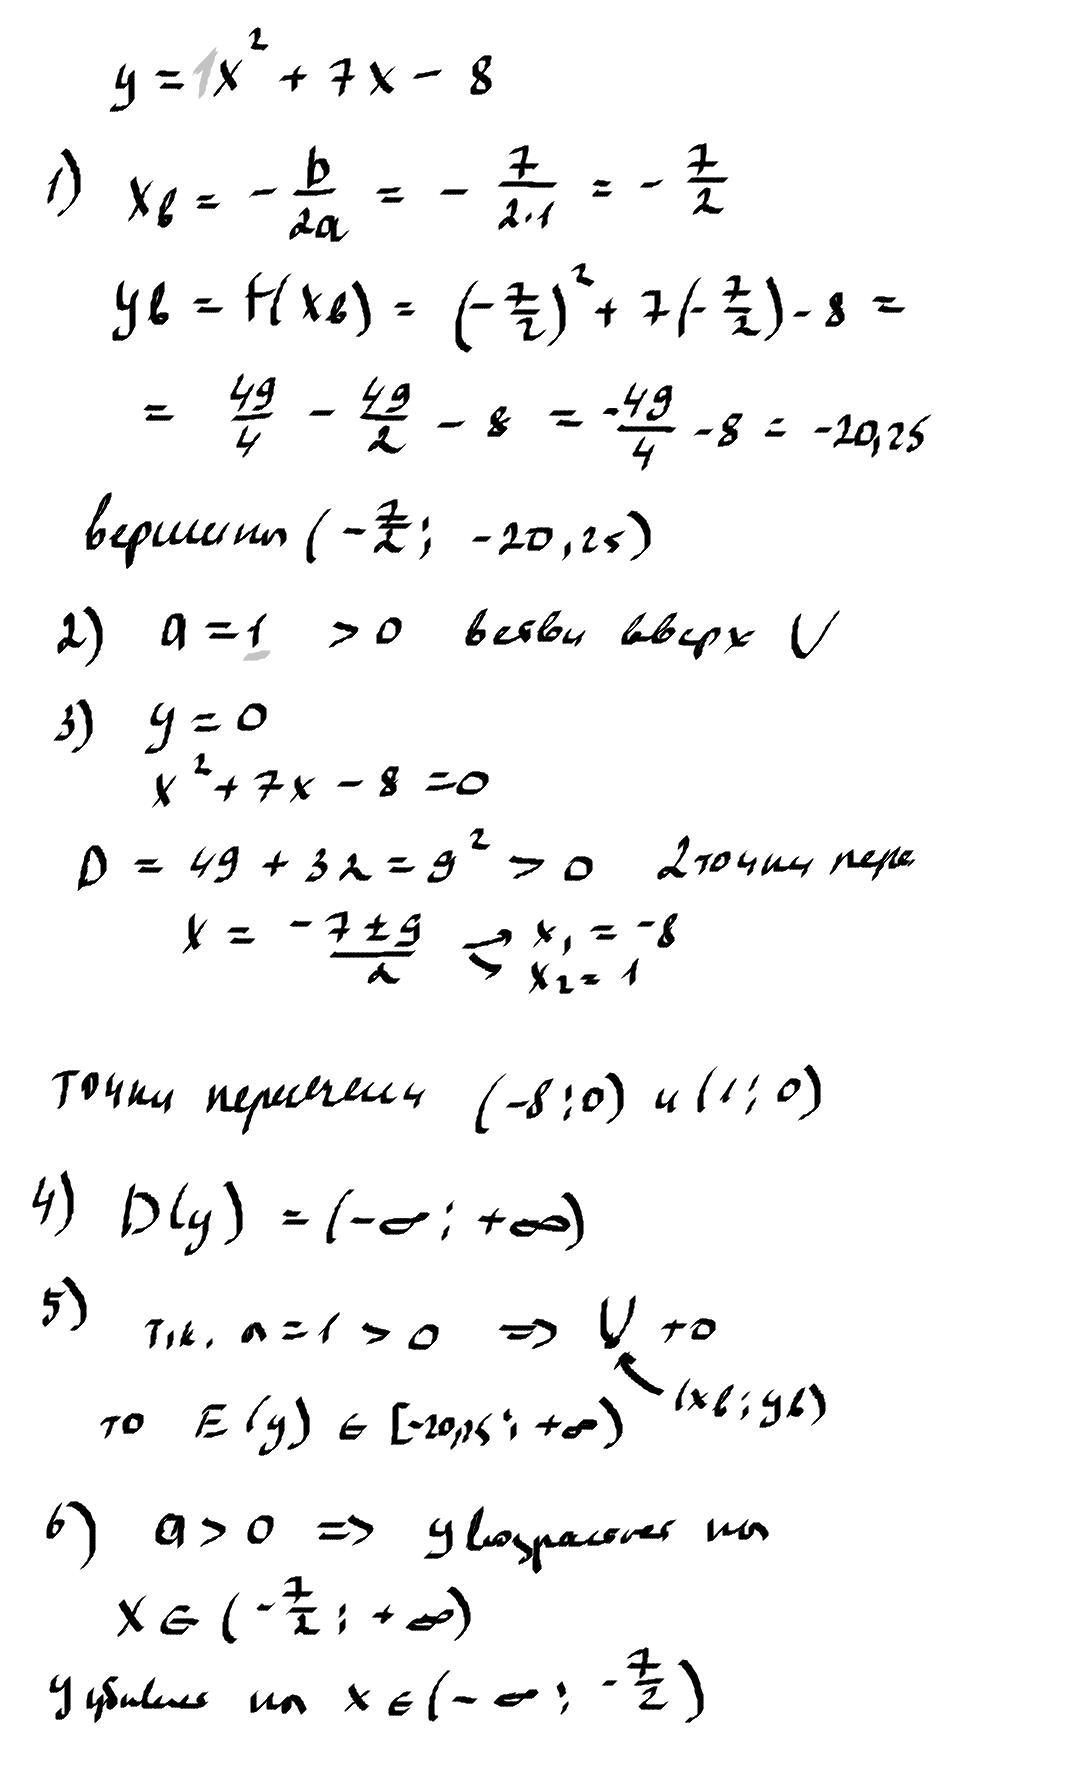 y = 1x² + 7x - 8
1) xв = - b/2a = - 7/2·1 = - 7/2
yв = f(xв) = (-7/2)² + 7(-7/2) - 8 =
= 49/4 - 49/2 - 8 = -49/4 - 8 = -20,25
вершина (-7/2; -20,25)
2) a = 1 > 0 ветви вверх U
3) y = 0
x² + 7x - 8 = 0
D = 49 + 32 = 9² > 0 2 точки пере
x = -7±9/2 → x₁ = -8
x₂ = 1
точки пересечени (-8; 0) и (1; 0)
4) D(y) = (-∞; +∞)
5) т.к. a = 1 > 0 ⇒ U то
(xв; yв)
то E(y) ∈ [-20,25; +∞)
6) a > 0 ⇒ y возрастает на
x ∈ (-7/2; +∞)
y убывает на x ∈ (-∞; -7/2)